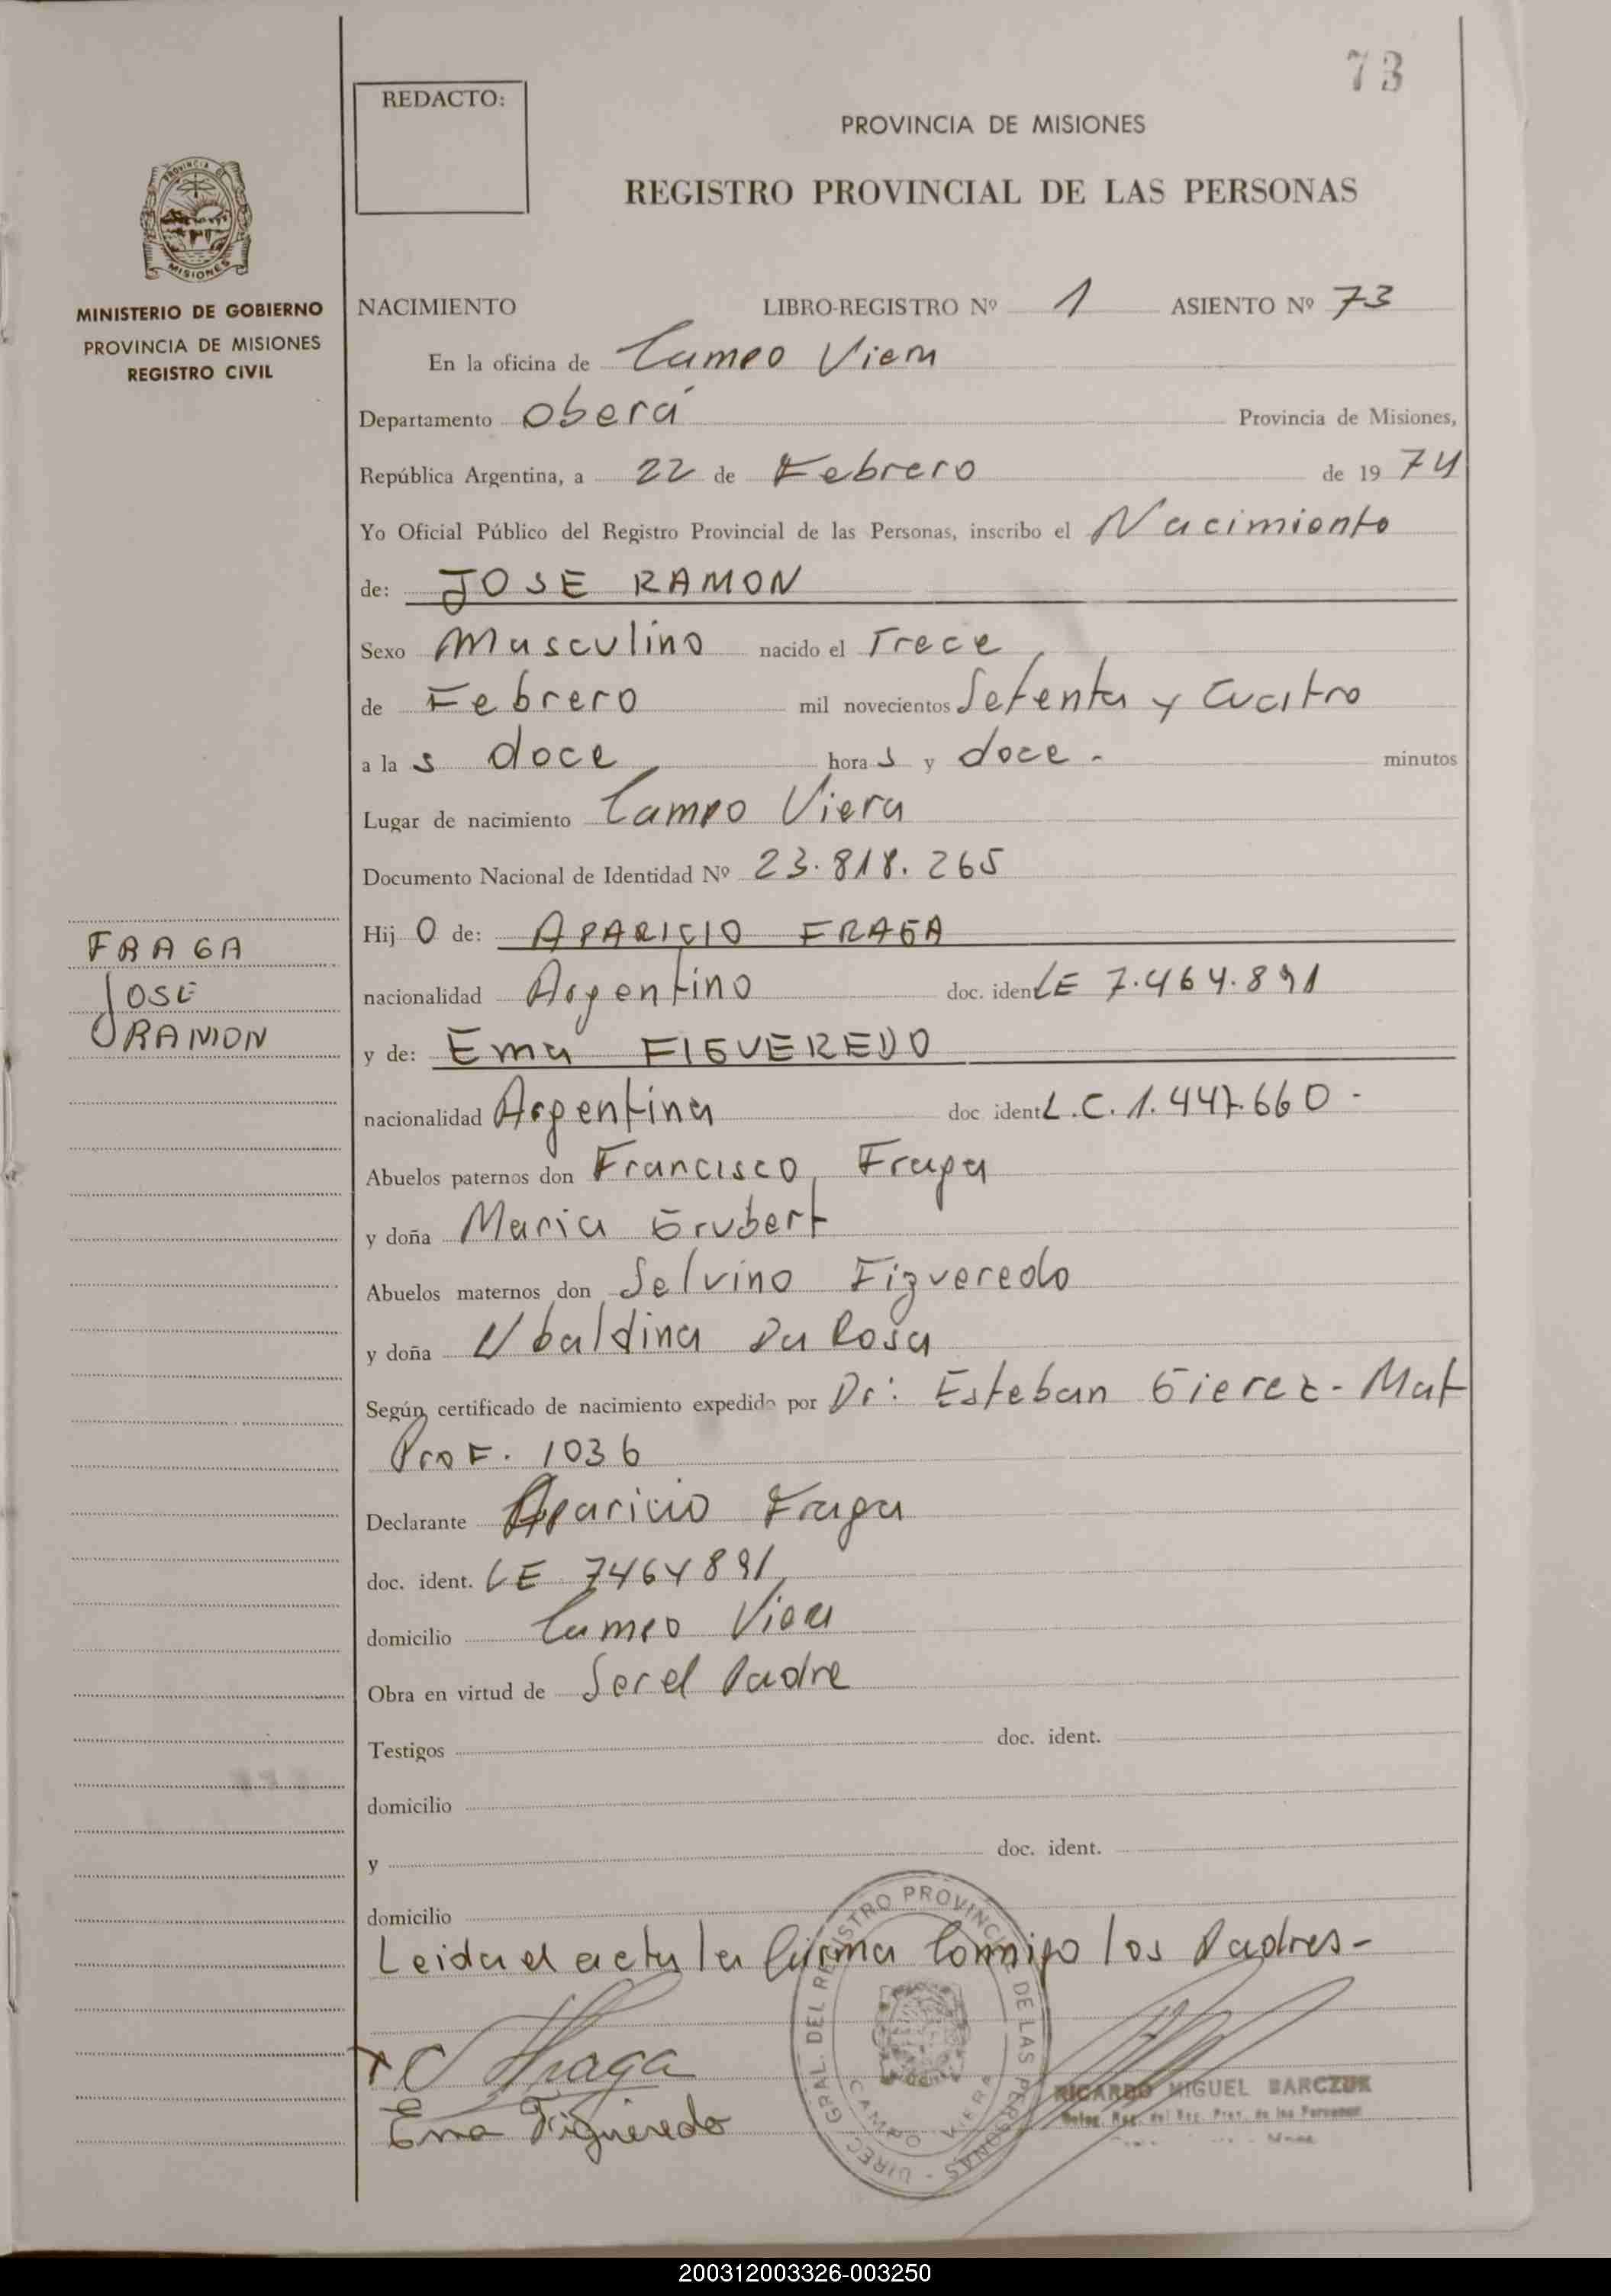 73
REDACTO:
PROVINCIA DE MISIONES
REGISTRO PROVINCIAL DE LAS PERSONAS
PROVINCIA DE
MISIONES
MINISTERIO DE GOBIERNO
PROVINCIA DE MISIONES
REGISTRO CIVIL
NACIMIENTO LIBRO-REGISTRO Nº 1 ASIENTO Nº 73
En la oficina de Campo Viera
Departamento Oberá Provincia de Misiones,
República Argentina, a 22 de Febrero de 1974
Yo Oficial Público del Registro Provincial de las Personas, inscribo el Nacimiento
de: JOSE RAMON
Sexo Masculino nacido el Trece
de Febrero mil novecientos Setenta y Cuatro
a las doce horas y doce - minutos
Lugar de nacimiento Campo Viera
Documento Nacional de Identidad Nº 23.818.265
Hijo de: APARICIO FRAGA
FRAGA
JOSE
RAMON
nacionalidad Argentino doc. ident LE 7.464.891
y de: Ema FIGUEREDO
nacionalidad Argentina doc ident L.C. 1.447.660 -
Abuelos paternos don Francisco Fraga
y doña Maria Grubert
Abuelos maternos don Selvino Figueredo
y doña Ubaldina Da Rosa
Según certificado de nacimiento expedido por Dr: Esteban Gierez - Mat
Prof. 1036
Declarante Aparicio Fraga
doc. ident. LE 7464891
domicilio Campo Viera
Obra en virtud de Ser el Padre
Testigos doc. ident.
domicilio
y doc. ident.
domicilio
Leida el acta la firma conmigo los Padres -
Fraga
Ema Figueredo
DIREC. GRAL. DEL REGISTRO PROVINCIAL DE LAS PERSONAS -
CAMPO VIERA
RICARDO MIGUEL BARCZUK
200312003326-003250